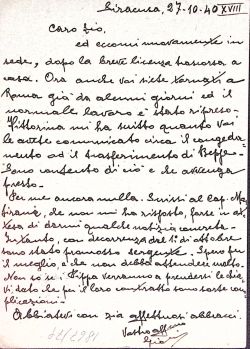 Siracusa, 27-10-40 XVIII
Caro zio,
ed eccomi nuovamente in
sede, dopo la breve licenza trascorsa a
casa. Ora anche voi siete tornati a
Roma già da alcuni giorni ed il
normale lavoro è stato ripreso.
Vittorina mi ha scritto quanto voi
le avete comunicato circa il congeda-
mento ed il trasferimento di Beppe.
Sono contento di ciò e che avvenga
presto.
Per me ancora nulla. Scrissi al Cap.
che non mi ha risposto, forse in at-
tesa di darmi qualche notizia concreta.
Intanto, con decorrenza dal 1° di ottobre
sono stato promosso sergente. Spero per
il meglio, e che non debba attendere molto.
Non so se i Pippa verranno a prendersi le
dato che per il loro contratto sono sorte com-
plicazioni.
Abbiatevi con zia affettuosi abbracci.
Vostro aff.mo